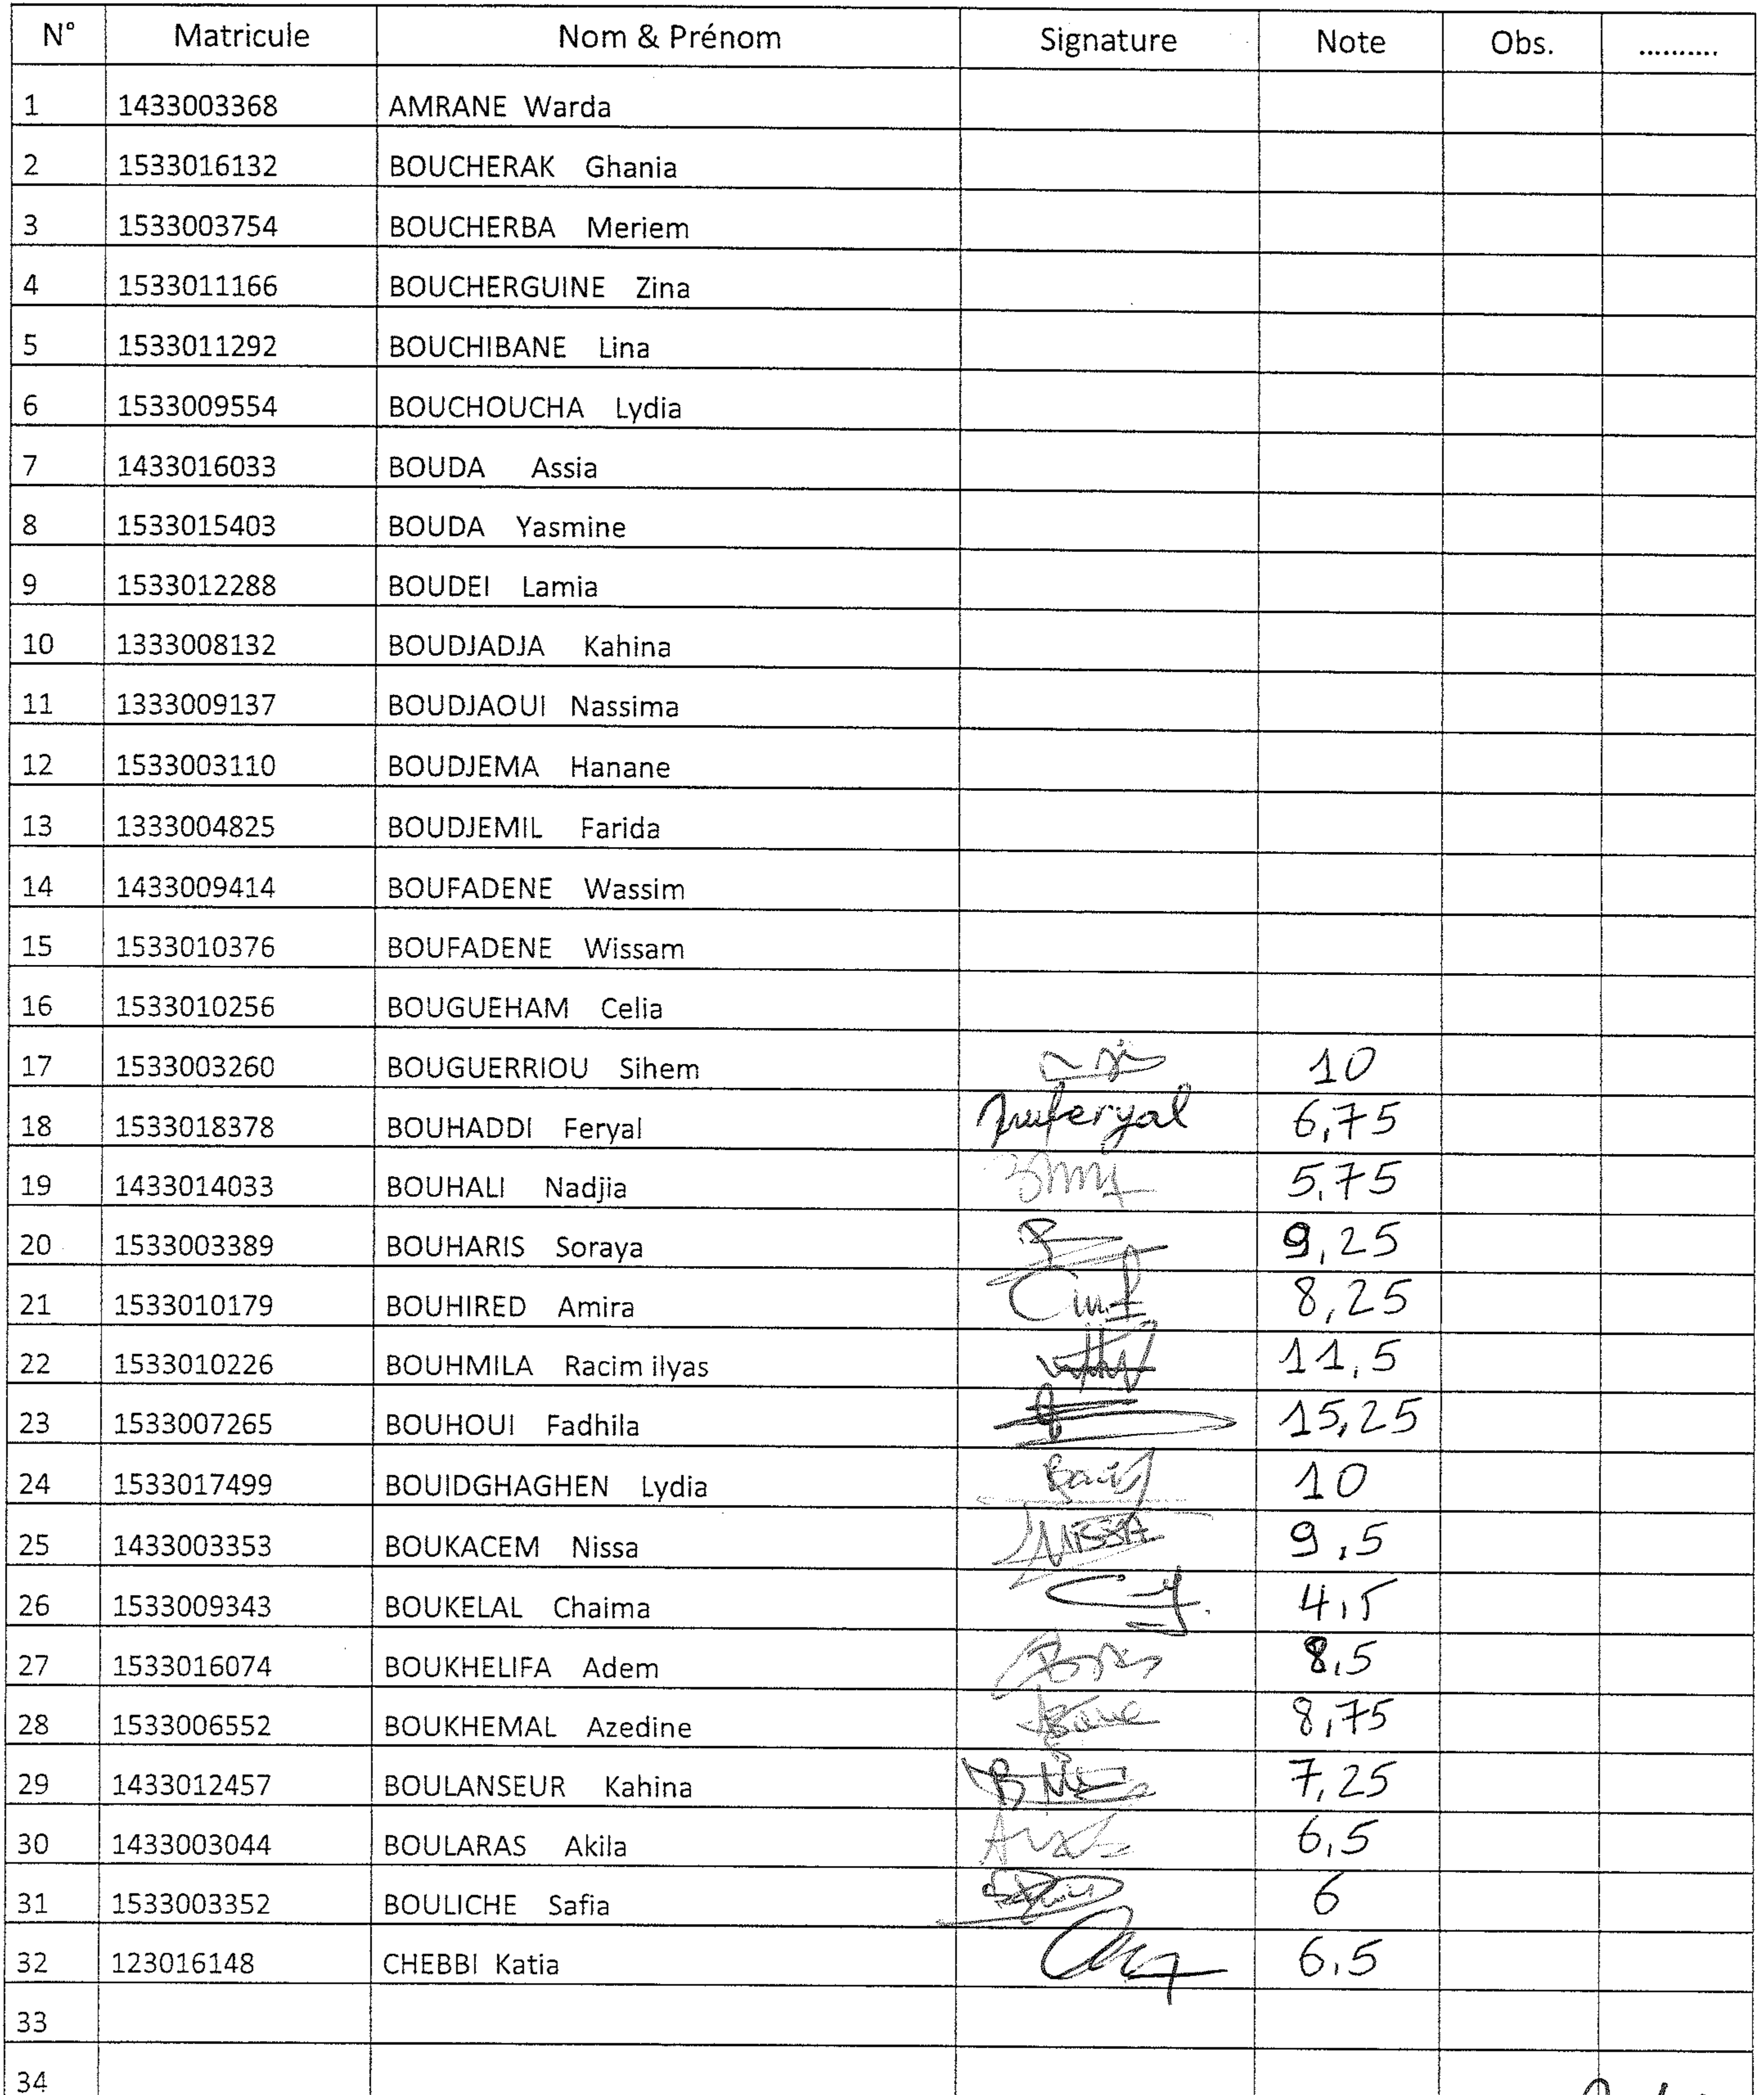 N° Matricule Nom & Prénom Signature Note Obs. ..........
1 1433003368 AMRANE Warda
2 1533016132 BOUCHERAK Ghania
3 1533003754 BOUCHERBA Meriem
4 1533011166 BOUCHERGUINE Zina
5 1533011292 BOUCHIBANE Lina
6 1533009554 BOUCHOUCHA Lydia
7 1433016033 BOUDA Assia
8 1533015403 BOUDA Yasmine
9 1533012288 BOUDEI Lamia
10 1333008132 BOUDJADJA Kahina
11 1333009137 BOUDJAOUI Nassima
12 1533003110 BOUDJEMA Hanane
13 1333004825 BOUDJEMIL Farida
14 1433009414 BOUFADENE Wassim
15 1533010376 BOUFADENE Wissam
16 1533010256 BOUGUEHAM Celia
17 1533003260 BOUGUERRIOU Sihem 10
18 1533018378 BOUHADDI Feryal feryal 6,75
19 1433014033 BOUHALI Nadjia 5,75
20 1533003389 BOUHARIS Soraya 9,25
21 1533010179 BOUHIRED Amira 8,25
22 1533010226 BOUHMILA Racim ilyas 11,5
23 1533007265 BOUHOUI Fadhila 15,25
24 1533017499 BOUIDGHAGHEN Lydia 10
25 1433003353 BOUKACEM Nissa 9,5
26 1533009343 BOUKELAL Chaima 4,5
27 1533016074 BOUKHELIFA Adem 8,5
28 1533006552 BOUKHEMAL Azedine 8,75
29 1433012457 BOULANSEUR Kahina 7,25
30 1433003044 BOULARAS Akila 6,5
31 1533003352 BOULICHE Safia 6
32 123016148 CHEBBI Katia 6,5
33
34